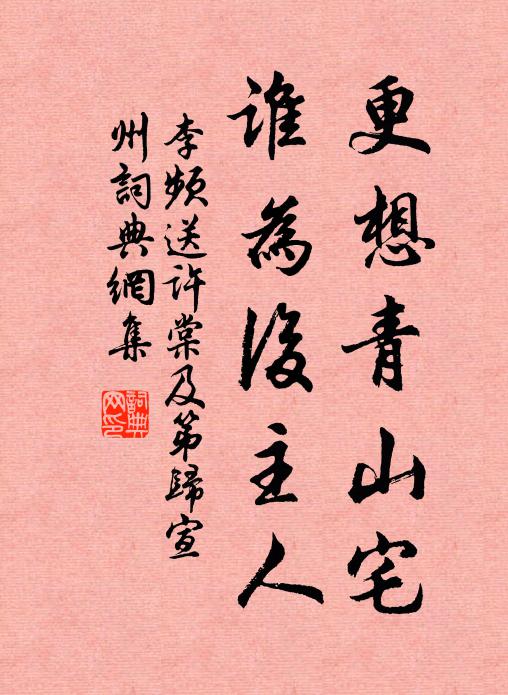 更想青山宅
誰為後主人
李頻送許棠及第歸宣
州詞典網集
詞典网印